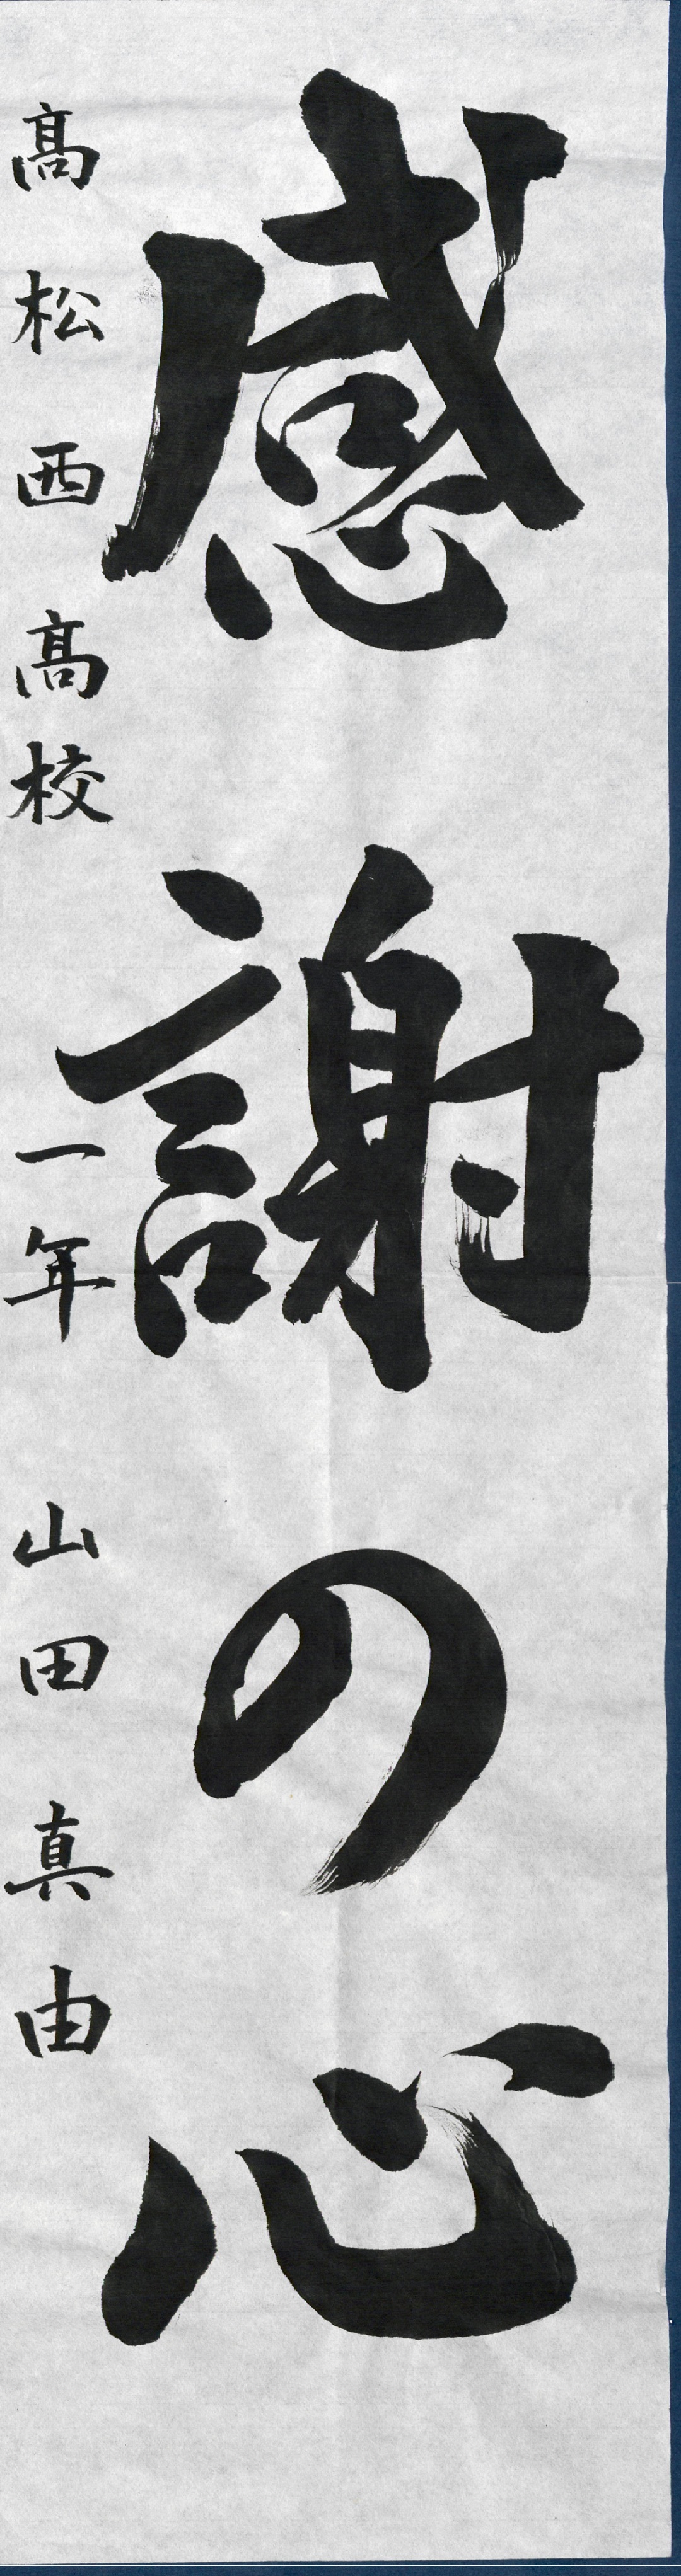 感謝の心
髙松西髙校 一年 山田真由